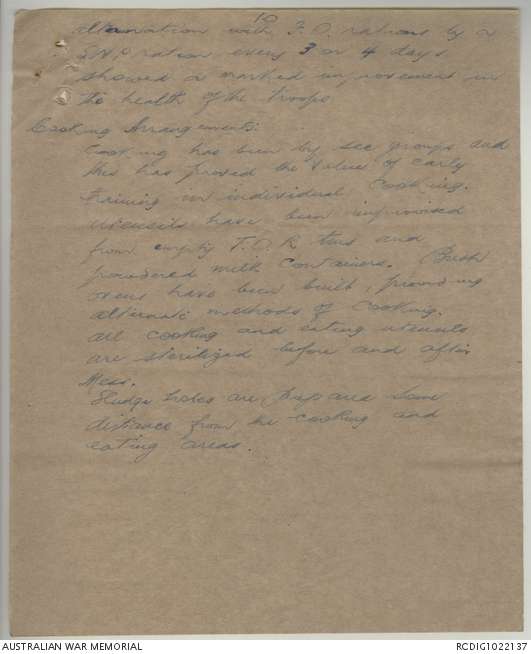 10
alternation with F.O. rations by a
ration every 3 or 4 days
showed a marked improvement in
the health of the troops
Cooking Arrangements:
Cooking has been by sec groups and
this has proved the value of early
training in individual cooking.
utensils have been improvised
from empty T.O.R tins and
powdered milk containers. Bush
ovens have been built, providing
alternate methods of cooking.
all cooking and eating utensils
are sterilized before and after
Mess.
holes are some
distance from the cooking and
eating areas.
AUSTRALIAN WAR MEMORIAL
RCDIG1022137